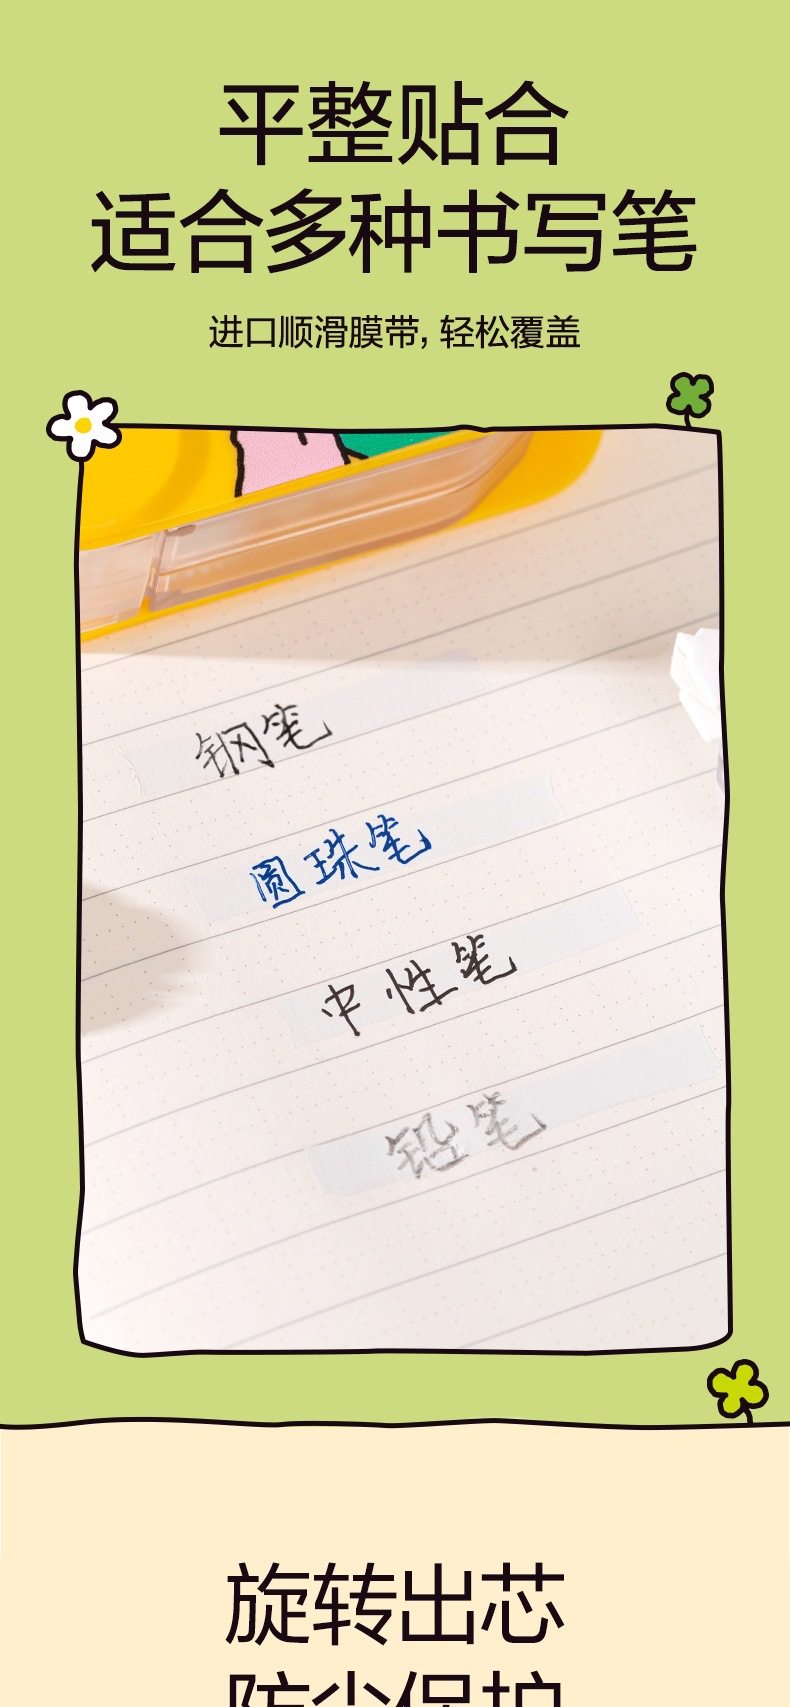 平整贴合
适合多种书写笔
进口顺滑膜带, 轻松覆盖
钢笔
圆珠笔
中性笔
铅笔
旋转出芯
防尘保护